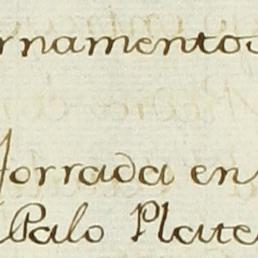 rnamentos
forrada en
Palo Plate